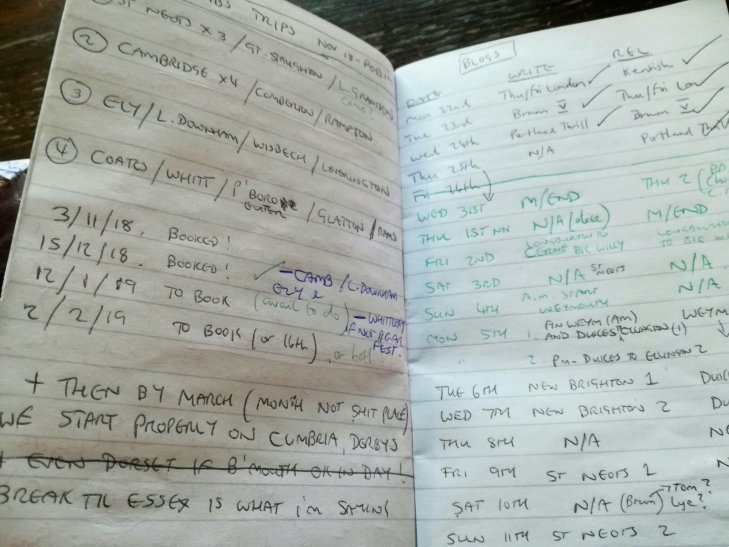 TRIPS NOV 18 -
① ST NEOTS x 3 / GT. STAUGHTON / L. GRANSDEN
② CAMBRIDGE x4 / COMBERTON / RAMPTON
③ ELY / L. DOWNHAM / WISBECH / LEVERINGTON
④ COATES / WHITT / P'BORO OUTER / GLATTON / RAMS
3/11/18. BOOKED!
15/12/18. BOOKED! ✓ - CAMB / L. DOWNHAM
ELY 2
12/1/19 TO BOOK (avail to do) - WHITTLESEY
IF NOT BEER FEST.
2/2/19 TO BOOK (or 16th), or both
+ THEN BY MARCH (MONTH NOT SHIT PLACE)
WE START PROPERLY ON CUMBRIA, DERBYS
+ EVEN DORSET IF B'MOUTH OK IN DAY!
BREAK TIL ESSEX IS WHAT I'M SAYING
BLOGS
DATE WRITE REL
Mon 22nd Thu/Fri London ✓ Kentish ✓
Tue 23rd Brum V ✓ Thu/Fri Lon ✓
Wed 24th Portland Thrill ✓ Brum V ✓
Thu 25th N/A Portland Thrill
Fri 26th
WED 31ST M/END THU 2
THU 1ST NOV N/A (dice) M/END
FRI 2ND LONGBURTON TO CERNE BIG WILLY LONGBURTON TO BIG
SAT 3RD N/A ST NEOTS N/A
SUN 4TH A.M. START WEYMOUTH N/A
MON 5TH 1. FIN WEYM (AM) WEYM
AND DULCES
2. PM - DULCES TO ELLINGTON 2
TUE 6TH NEW BRIGHTON 1 DULC
WED 7TH NEW BRIGHTON 2 DU
THU 8TH N/A NE
FRI 9TH ST NEOTS 1 N
SAT 10TH N/A (Brum) → Tom? Lye?
SUN 11TH ST NEOTS 2